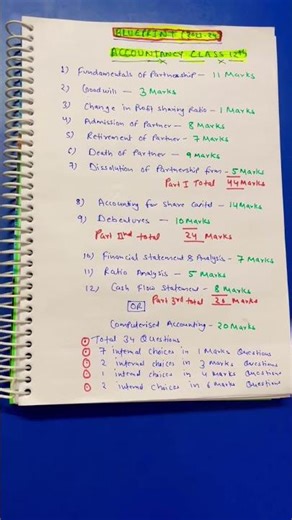 BLUEPRINT
ACCOUNTANCY CLASS 12th
1) Fundamentals of Partnership - 11 Marks
2) Goodwill - 3 Marks
3) Change in Profit Sharing Ratio - 1 Marks
4) Admission of Partner - 8 Marks
5) Retirement of Partner - 7 Marks
6) Death of Partner - 9 Marks
7) Dissolution of Partnership firm - 5 Marks
Part I Total 44 Marks
8) Accounting for Share Capital - 14 Marks
9) Debentures - 10 Marks
Part IInd total 24 Marks
10) Financial Statement & Analysis - 7 Marks
11) Ratio Analysis - 5 Marks
12) Cash Flow Statement - 8 Marks
OR Part 3rd total 20 Marks
Computerised Accounting - 20 Marks
Total 34 Questions
7 internal choices in 1 Marks Questions
2 internal choices in 3 Marks Questions
1 internal choices in 4 Marks Questions
2 internal choices in 6 Marks Questions